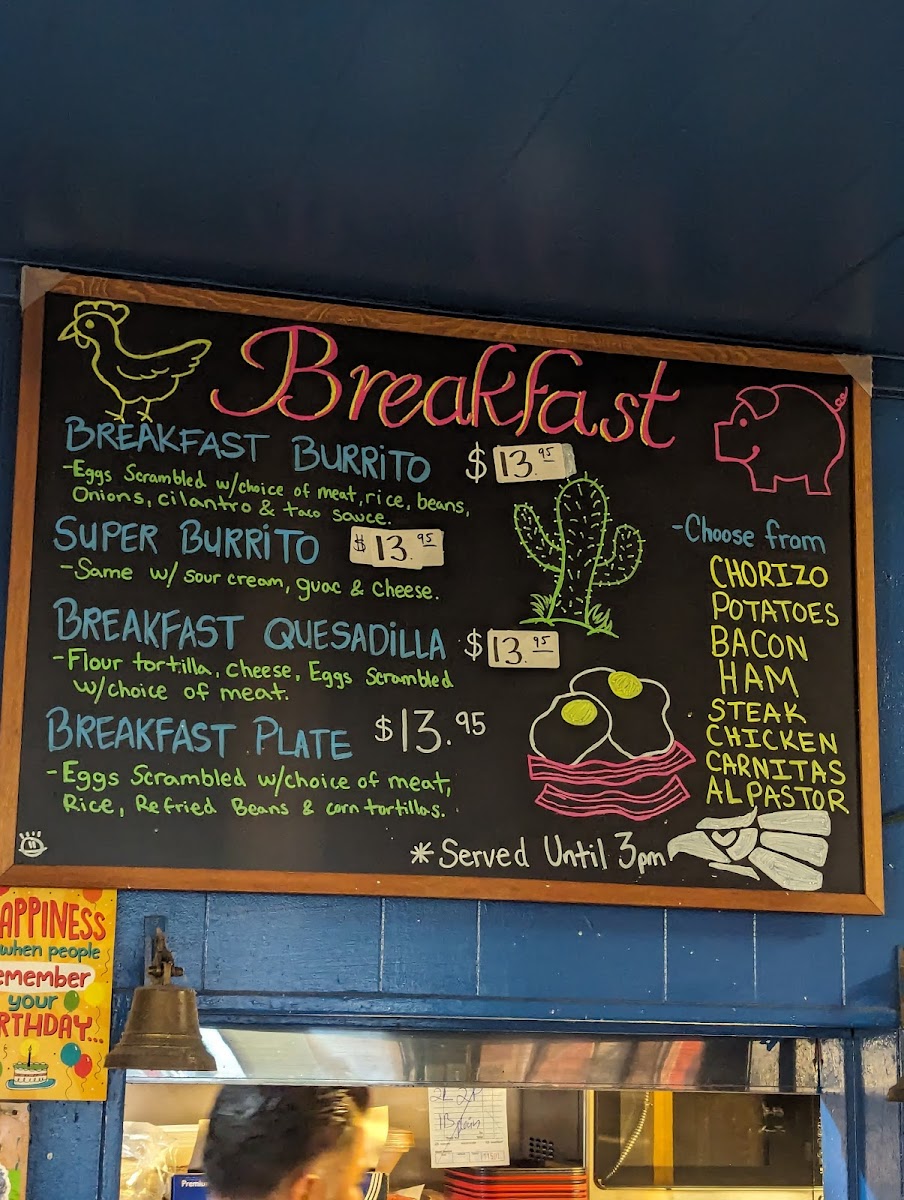 Breakfast
BREAKFAST BURRITO $ 13.95
-Eggs Scrambled w/choice of meat, rice, beans,
Onions, cilantro & taco sauce.
SUPER BURRITO $13.95
-Same w/ sour cream, guac & cheese.
BREAKFAST QUESADILLA $13.95
-Flour tortilla, cheese, Eggs Scrambled
w/choice of meat.
BREAKFAST PLATE $13.95
-Eggs Scrambled w/choice of meat,
Rice, Refried Beans & corn tortillas.
-Choose from
CHORIZO
POTATOES
BACON
HAM
STEAK
CHICKEN
CARNITAS
AL PASTOR
*Served Until 3pm
APPINESS
when people
emember
your
RTHDAY...
Premium